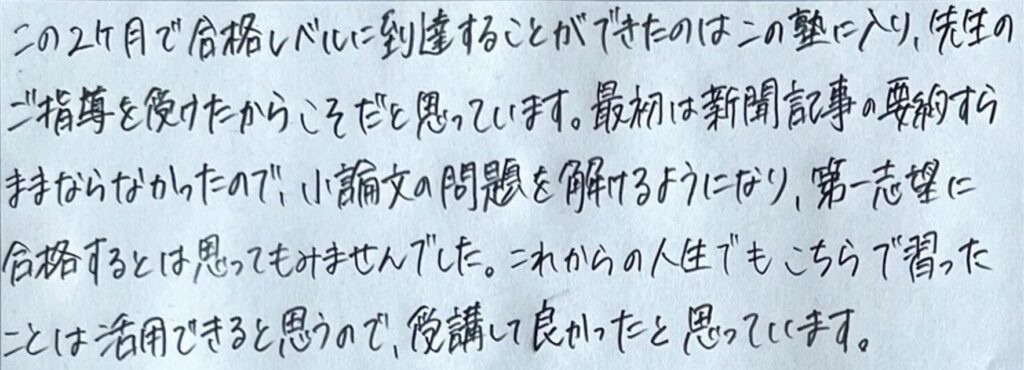 この2ヶ月で合格レベルに到達することができたのはこの塾に入り、先生の
ご指導を受けたからこそだと思っています。最初は新聞記事の要約すら
ままならなかったので、小論文の問題を解けるようになり、第一志望に
合格するとは思ってもみませんでした。これからの人生でもこちらで習った
ことは活用できると思うので、受講して良かったと思っています。